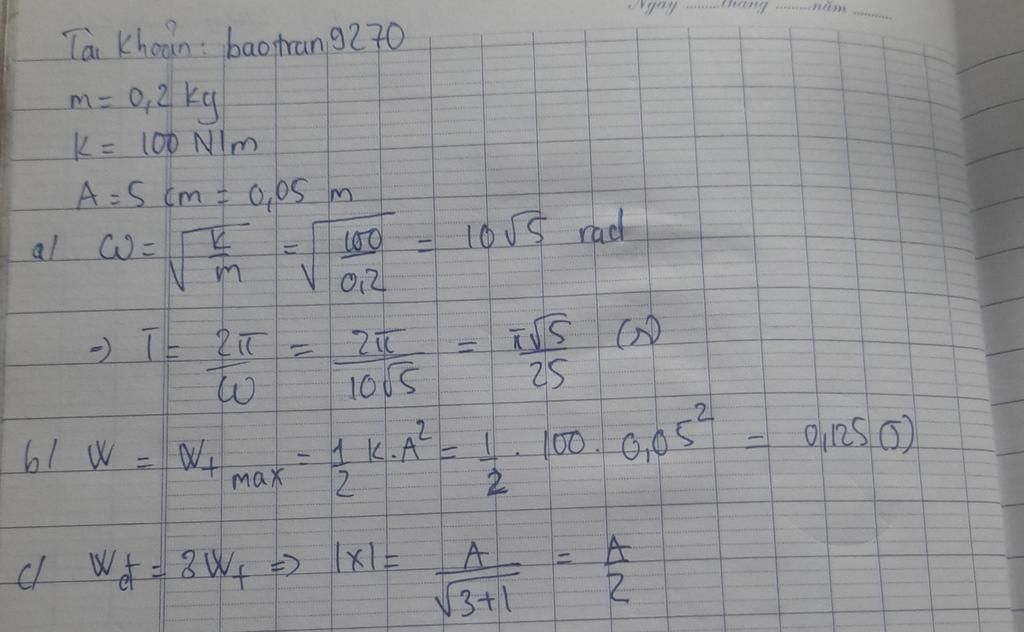 Ngày ........tháng ........năm ........
Tài khoản: baotran9270
m = 0,2 kg
K = 100 N/m
A = 5 cm = 0,05 m
a/ ω = √(K/m) = √(100/0,2) = 10√5 rad
=> T = 2π/ω = 2π/(10√5) = π√5/25 (s)
b/ W = Wt max = 1/2 K.A² = 1/2 . 100 . 0,05² = 0,125 (J)
c/ Wđ = 3Wt => |x| = A/√(3+1) = A/2